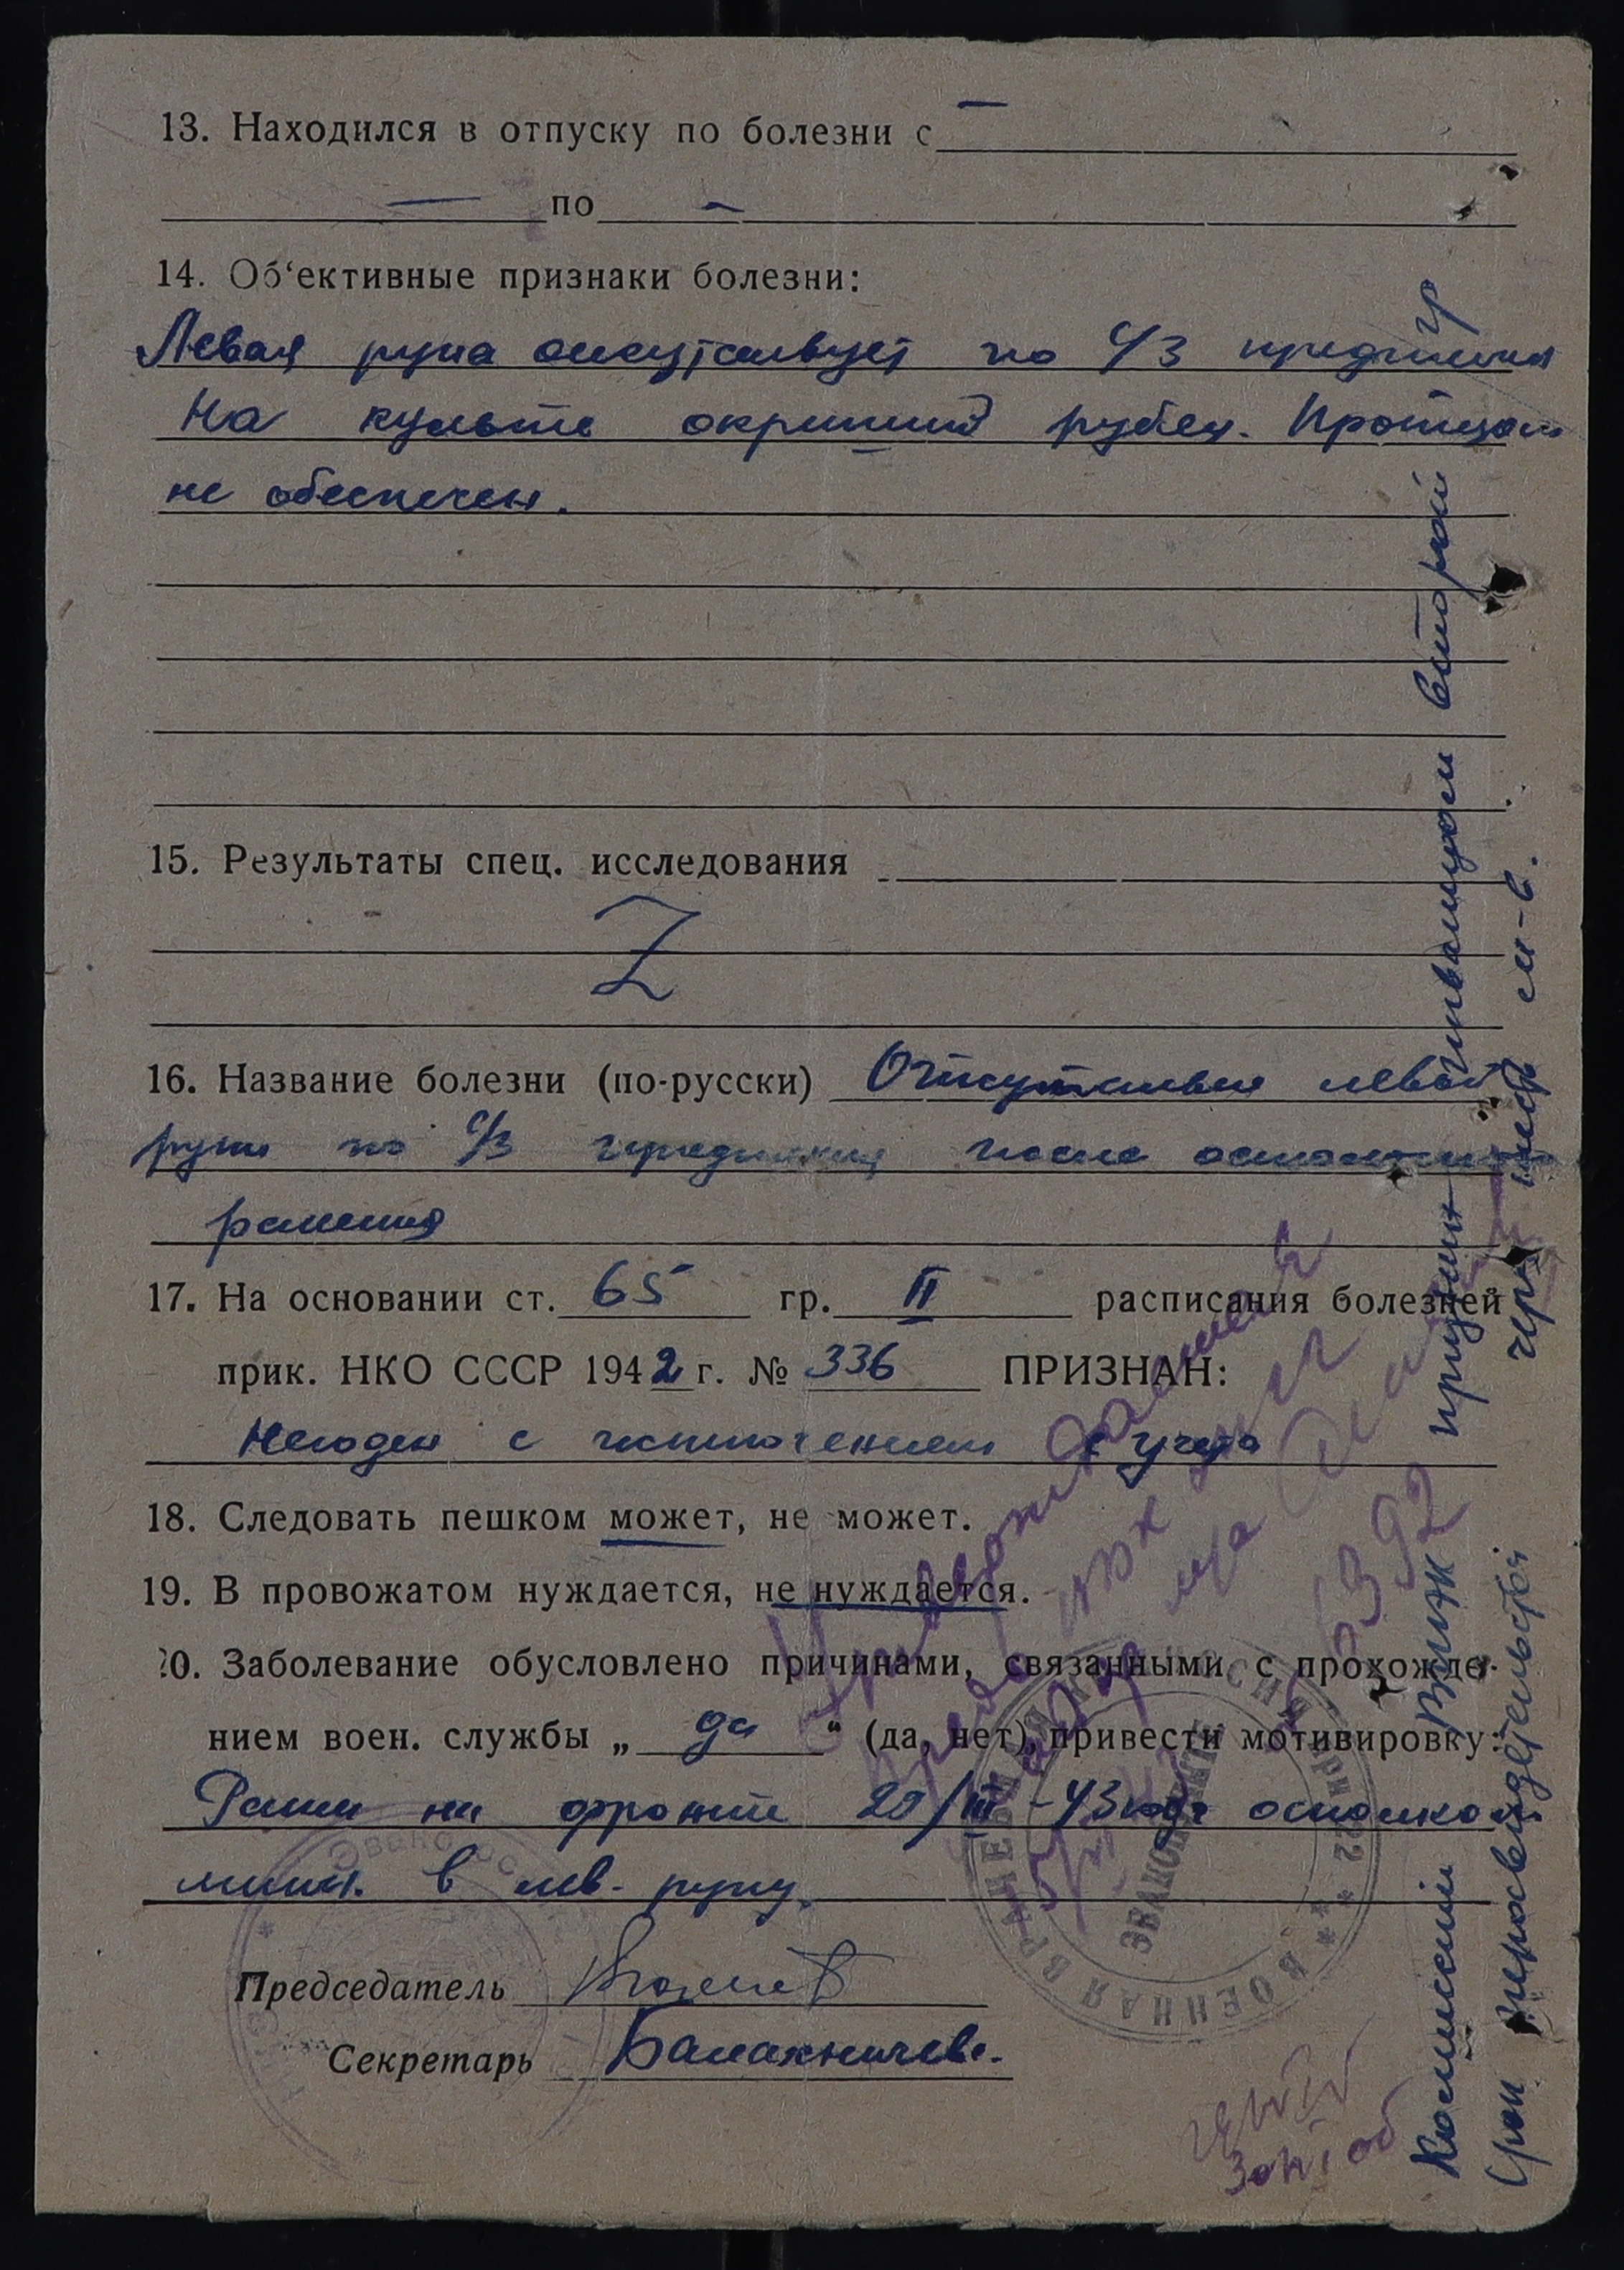 13. Находился в отпуску по болезни с —
— по —
14. Об‘ективные признаки болезни:
Левая рука отсутствует по с/3 предплечья
На культе окрепший рубец. Протезом
не обеспечен.
15. Результаты спец. исследования
Z
16. Название болезни (по-русски) Отсутствие левой
руки по с/3 предплечья после осколочного
ранения
17. На основании ст. 65 гр. II расписания болезней
прик. НКО СССР 1942 г. № 336 ПРИЗНАН:
Негоден с исключением с учета
18. Следовать пешком может, не может.
19. В провожатом нуждается, не нуждается.
20. Заболевание обусловлено причинами, связанными с прохожде-
нием воен. службы „ да “ (да, нет), привести мотивировку:
Ранен на фронте 20/III-43 года осколком
мины в лев. руку.
Председатель
Секретарь
Комиссией ВТЭК признан инвалидом второй гр
Срок переосвидетельствования через шесть м-в.
ВОЕННАЯ ВРАЧЕБНАЯ КОМИССИЯ
6392